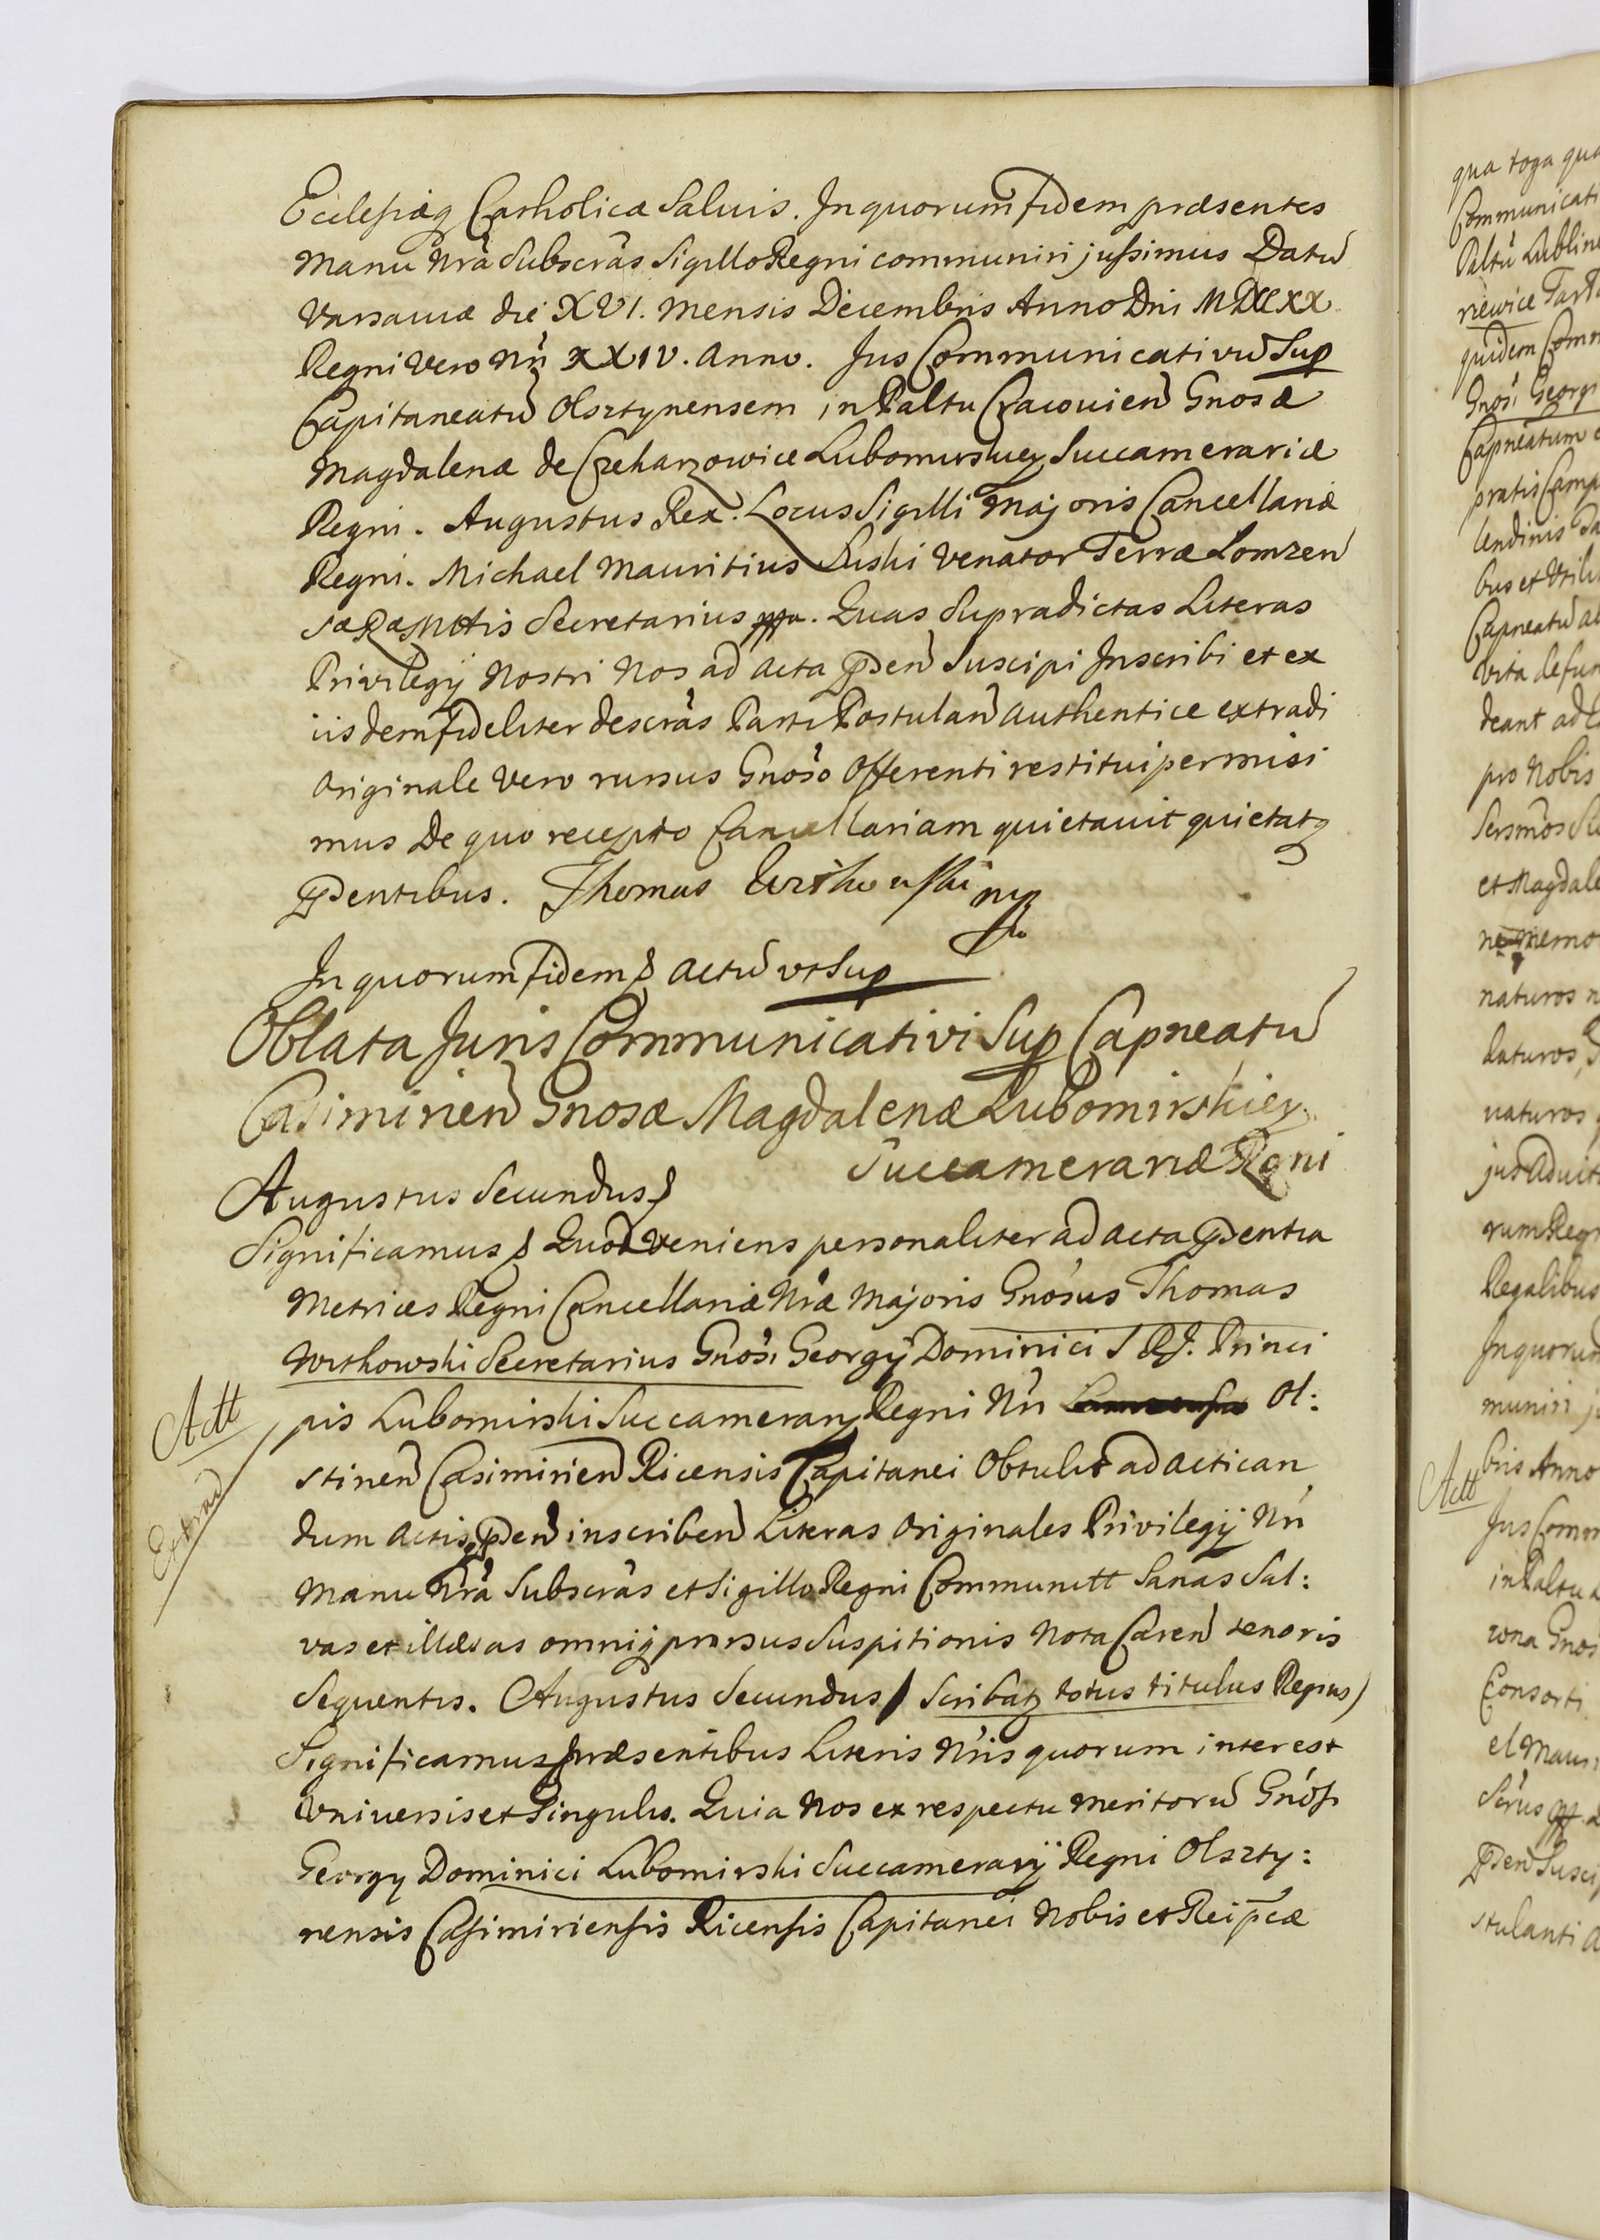 Ecclesiæq Catholicæ Salvis. In quorum fidem præsentes
manu nrâ Subscrâs Sigillo Regni communiri jussimus Datu
Varsaviæ die XVI. mensis Decembris Anno Dni MDCCXX
Regni vero Nri XXIV. anno. Jus Communicativu Sup
Capitaneatu Olsztynensem in Paltu Cracovien Gnosæ
Magdalenæ de Lubomirskiey Succamerariæ
Regni. Augustus Rex. Locus Sigilli Majoris Cancellariæ
Regni. Michael Mauritius Suski Venator Terræ Lomzen
SæRæMttis Secretarius. Quas Supradictas Literas
Privilegij Nostri Nos ad acta pden Suscipi Inscribi et ex
iisdem fideliter descrâs Parti Postulan authentice extradi
Originale vero rursus Gnoso Offerenti restitui permisi
mus De quo recepto Cancellariam quietavit quietatq
pdentibus. Thomas
In quorum fidem actu vt Sup
Oblata Juris Communicativi Sup Capneatu
Casimirien Gnosæ Magdalenæ Lubomirskiey
Succamerariæ Rgni
Augustus Secundus
Significamus Quod veniens personaliter ad acta pdentia
Metrices Regni Cancellariæ Nræ Majoris Gnosus Thomas
Secretarius Gnosi Georgij Dominici S R J. Princi
pis Lubomirski Succamerarij Regni Nri Ol:
stinen Casimirien Ricensis Capitanei Obtulit ad actican
dum actisq pden inscriben Literas Originales Privilegij Nri
Manu Nrâ Subscrâs et Sigillo Regni Communitt Sanas Sal:
vas et illæsas omniq prorsus Suspitionis Nota Caren tenoris
Sequentis. Augustus Secundus / Scribatz totus titulus Regius)
Significamus præsentibus Literis Nris quorum interest
Vniversis et Singulis. Quia Nos ex respectu meritoru Gnosi
Georgy Dominici Lubomirski Succamerarij Regni Olszty:
nensis Casimiriensis Ricensis Capitanei Nobis et Reipcæ
Actt
Extrad
qua toga qua
Communicati
Paltu Lublin
quidem Comm
Gnosi Georgi
Capneatum
pratis Camp
bus et Vtili
Capneatu
vita defun
deant ad
pro Nobis
et Magdale
naturos
daturos
rum Regn
Regalibus
In quorum
muniri
bris Anno
Actt
Jus Comm
in Paltu
Gnos
Consorti
el Mauri
pden Susci
stulanti